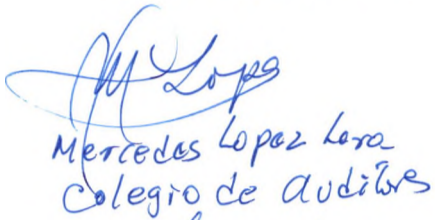 M Lopo
Mercedes Lopez Lara
Colegio de auditores